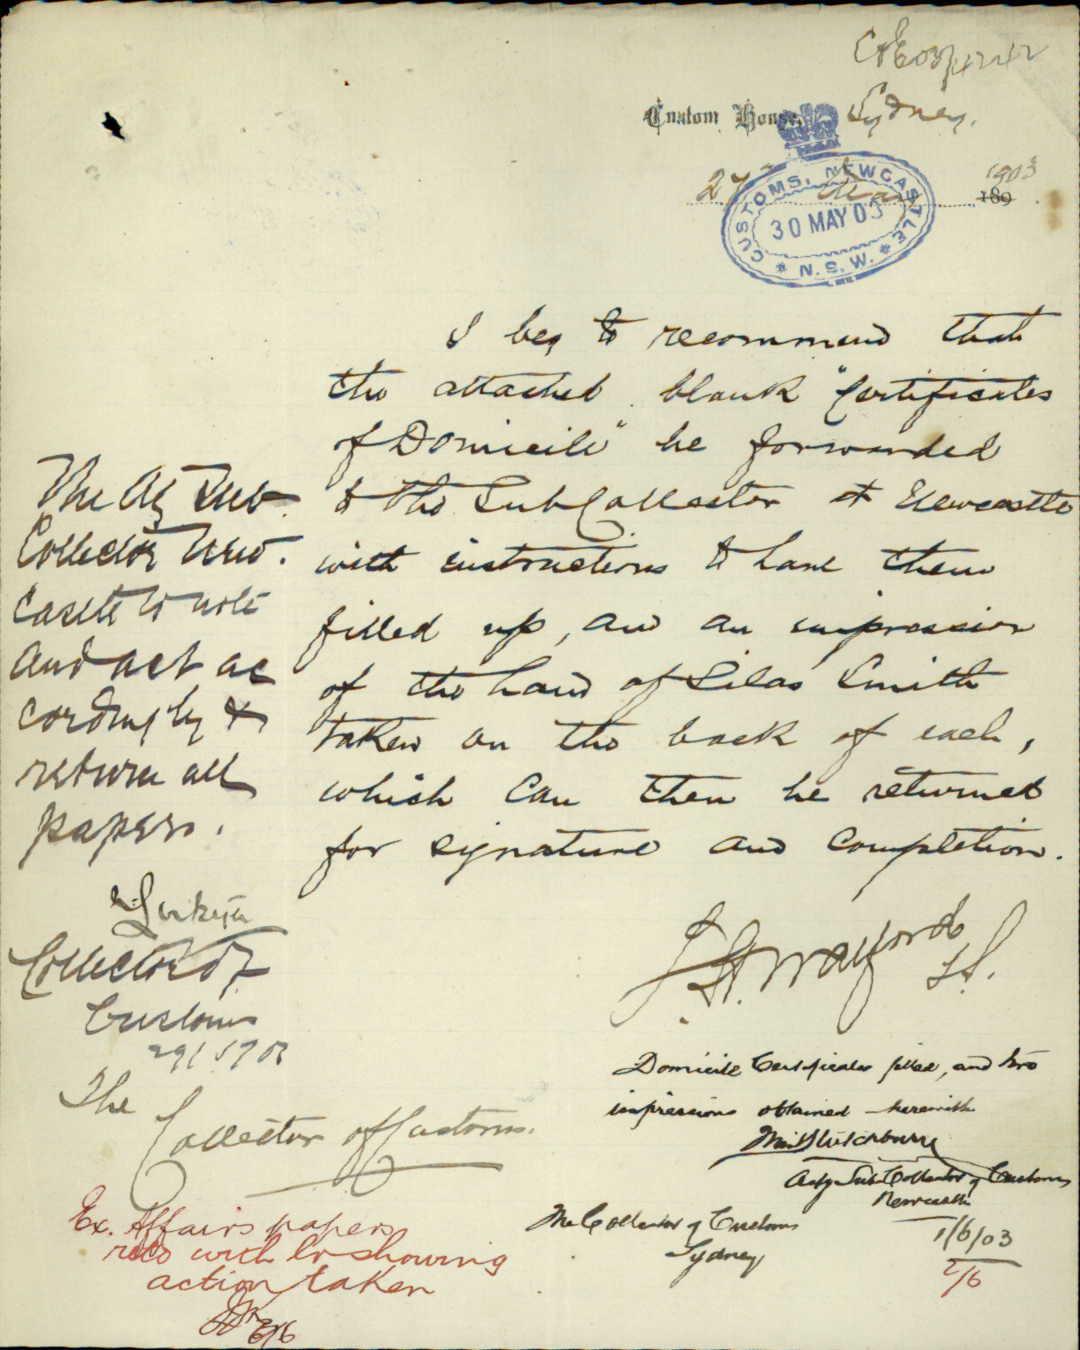 Custom House,
Sydney,
27 May 1903
189
CUSTOMS, NEWCASTLE
30 MAY 03
* N.S.W. *
I beg to recommend that
the attached blank "Certificates
of Domicile" be forwarded
to the Sub Collector at Newcastle
with instructions to have them
filled up, and an impression
of the hand of Silas Smith
taken on the back of each,
which can then be returned
for signature and completion.
The Ag Sub
Collector New
castle to note
and act ac
cordingly &
return all
papers.
Collector of
Customs
29/5/03
The
Collector of Customs.
Domicile Certificates filled, and two
impressions obtained herewith
Actg Sub Collector of Customs
Newcastle
1/6/03
2/6
The Collector of Customs
Sydney
Ex. Affairs papers
with showing
action taken